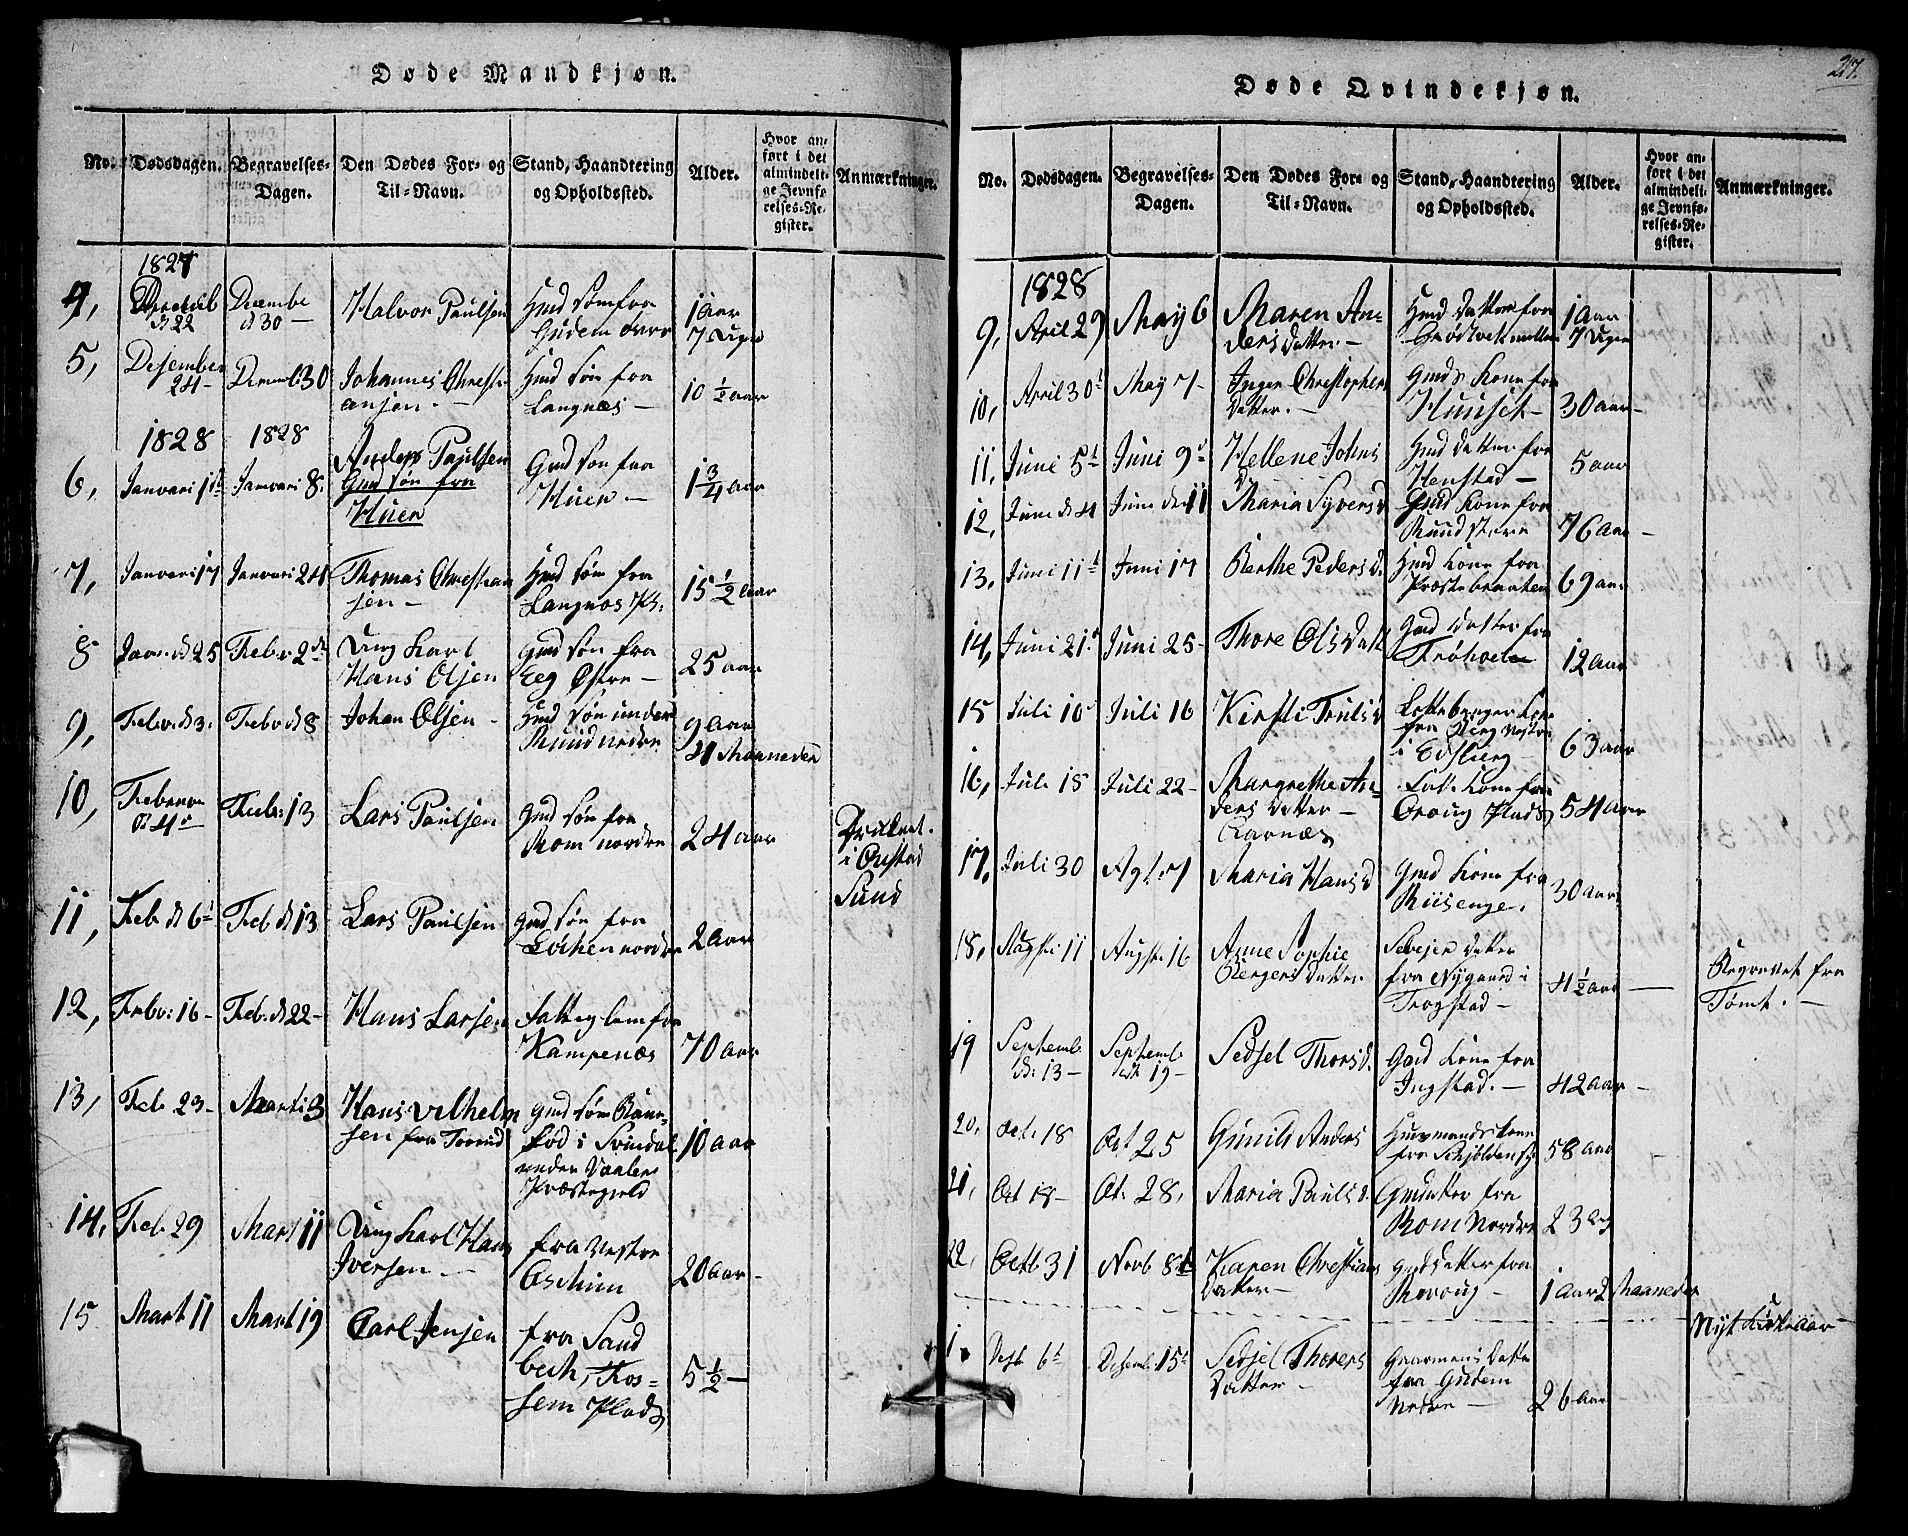 Døde Mandkjøn.
No.
Dødsdagen.
Begravelses-
Dagen.
Den Dødes For- og
Til-Navn.
Stand, Haandtering
og Opholdssted.
Alder.
Hvor an-
ført i det
almindeli-
ge Jevnfø-
relses-Re-
gister.
Anmærkninger.
1827
4,
d 22
Decembe
d 30 —
Halvor Paulsen
Gmd søn fra
Gudem øvre
1 aar
7 Uger
5,
Desember
24 —
30
Johannes Christi
ansen. —
Gmd søn fra
Langnæs —
10 ½ aar
1828
1828
6,
Januari 1
Januari 8.
Anders Paulsen
Gmd søn fra
Huer
Gmd søn fra
Huer —
1 ¾ aar
7,
Januari 17
Januari 24
Thomas Christian
sen —
Gmd søn fra
Langnæs
15 ½ aar
8
d 25
Febr 2
Ung karl
Hans Olsen
Gmd søn fra
Eeg Østre —
25 aar
9,
Febr. d 3.
Febr d 8
Johan Olsen —
Gmd søn under
Ruud nedre
9 aar
4 Maaneder
10,
d 4
Febr: 13
Lars Paulsen
Gmd søn fra
Rom nordre
24 aar
i Onstad
Sund
11,
Feb d 6
Feb d 13
Lars Paulsen
Gmd søn fra
nordre
2 aar
12,
Febr: 16 —
Feb. d 22 —
Hans Larsen
Fatteg lem fra
Kampenæs
70 aar
13,
Feb 23 —
Marti 3
Hans Vilhelm
sen fra
Gmd søn
Fød i Svindal
under Vaaler
Præstegield
10 aar
14,
Feb 29
Mart 11
Ung karl Hans
Iversen —
fra Vestre
Askim
20 aar —
15
Mart 11
Mart 19
Carl Jensen
fra Sand
bech,
sem Plads
5 ½ —
27.
Døde Qvindekjøn.
No.
Dødsdagen.
Begravelses-
Dagen.
Den Dødes For- og
Til-Navn.
Stand, Haandtering
og Opholdssted.
Alder.
Hvor an-
ført i det
almindeli-
ge Jevnfø-
relses-Re-
gister.
Anmærkninger.
1828
9,
April 29
May 6
Maren An-
ders Datter. —
Gmd Datter fra
1 aar
7 Uger
10,
April 30
May 7 —
Inger Christophers
Datter. —
Gmds kone fra
Huuset —
30 aar —
11,
Juni 5
Juni 9
Hellene Johns
D
Gmd Datter fra
Henstad —
5 aar
12,
Juni d 4
Juni d 11
Maria Syvers D
Gmd kone fra
Ruud store
76 aar —
13,
Juni 11
Juni 17
Berthe Peders D.
Gmd kone fra
Præstebraaten
69 aar
14,
Juni 21
Juni 25 —
Thore Ols Datt
Gmd Datter fra
12 aar
15
Juli 10
Juli 16
Kirsti Truls D
kone
fra Berg Vestre
i Edsberg —
63 aar
16,
Juli 18
Juli 22 —
Margrethe An-
ders Datter —
kone fra
Plads
54 aar
17,
Juli 30
Agst. 7
Maria Hans D
Gmd kone fra
Riisenge.
30 aar
18,
Augst. 11
Augst. 16
Anne Sophie
Bergers Datter.
Selvejer Datter
fra Nygaard i
Trøgstad —
4 ½ aar —
Begravet fra
Tomt. —
19
Septemb
d: 13 —
Septemb
19 —
Sedsel Thors D.
Gmd kone fra
Ingstad. —
42 aar —
20,
Oct. 18
Oct 25
Gunild Anders
Huusmands kone
fra
58 aar
21,
Oct 18 —
Oct. 28,
Maria Pauls D.
Gmdatter fra
Rom Nordre
23
22,
Octb 31
Novb 8
Karen Christians
Datter —
Gmd Datter fra
—
1 aar 2 Maaneder
Nyt Kirkeaar
1
6
Desemb. 15
Sedsel Thorers
Datter —
Datter
fra Gudem
Nedre —
26 aar